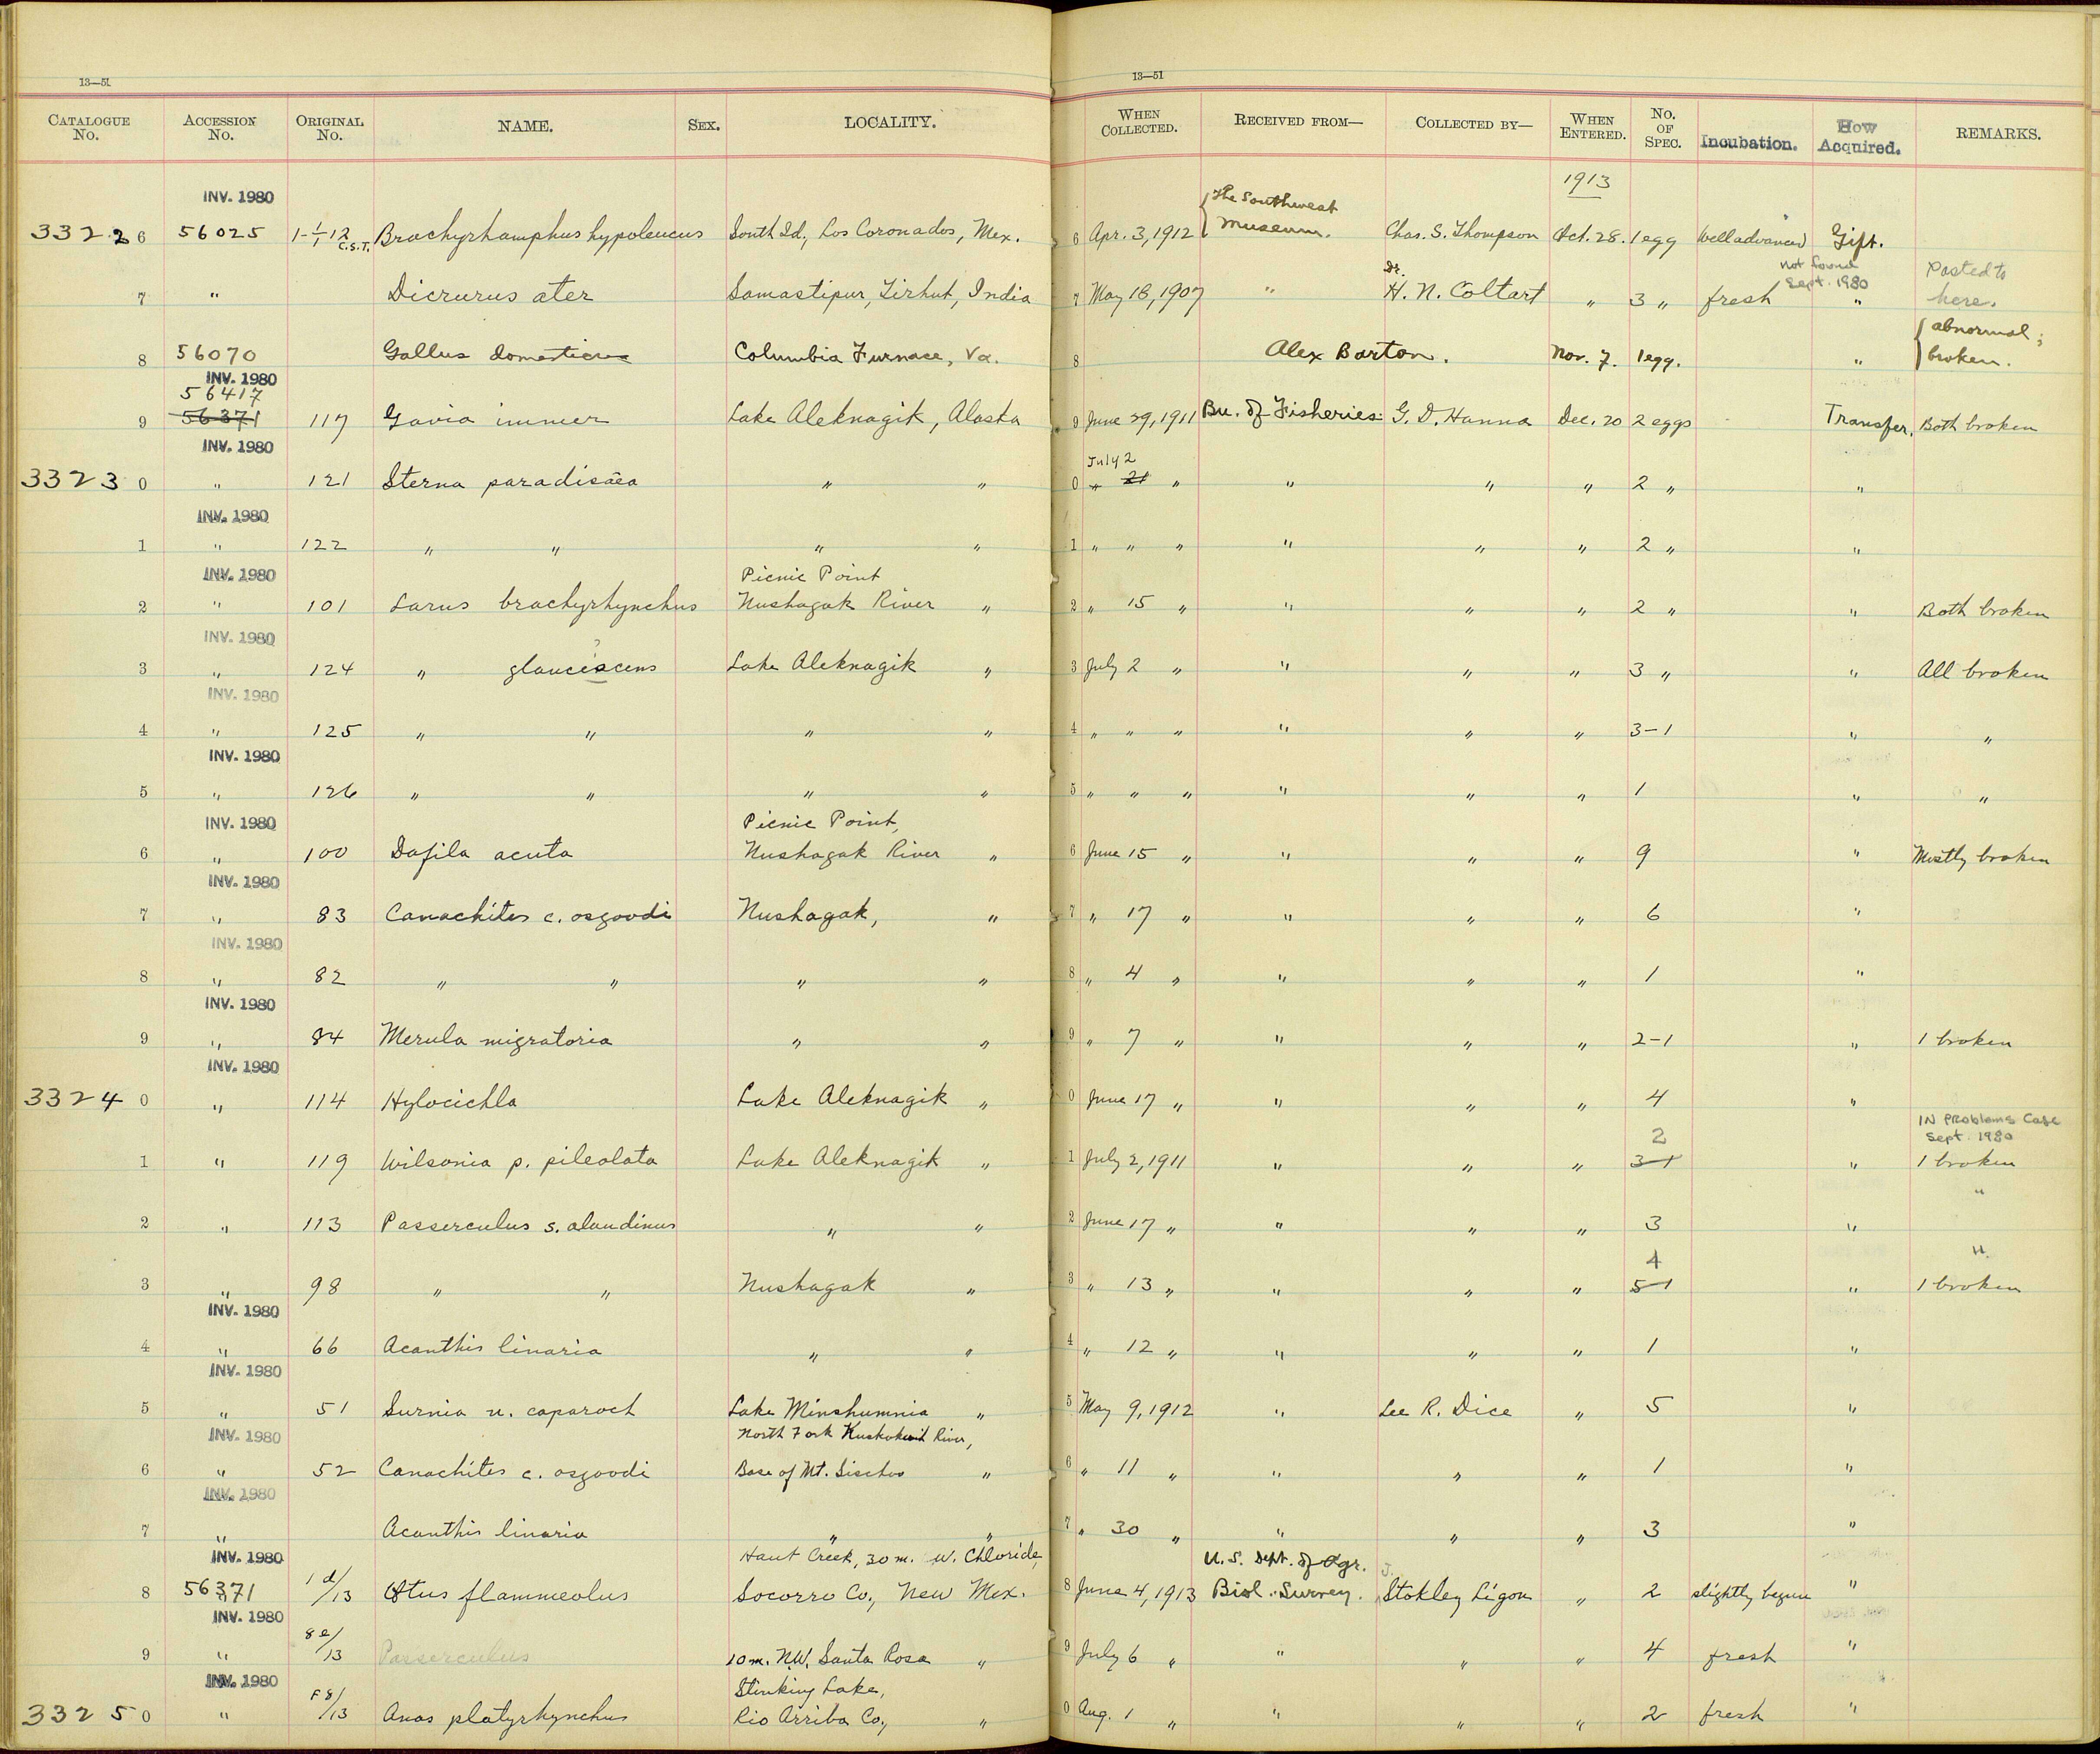 13—51
CATALOGUE No. ACCESSION No. ORIGINAL No. NAME. SEX. LOCALITY.
13—51
WHEN COLLECTED. RECEIVED FROM— COLLECTED BY— WHEN ENTERED. NO. OF SPEC. Incubation. How Acquired. REMARKS.
1913
INV. 1980
33226 56025 1-1/1 12 C.S.T. Brachyrhamphus hypoleucus South Id., Los Coronados, Mex. 6 Apr. 3, 1912 {The Southwest Museum. Chas. S. Thompson Oct. 28. 1 egg Well advanced Gift.
7 " Dicrurus ater Samastipur, Tirhut, India 7 May 18, 1907 " Dr. H. N. Coltart " 3 " fresh not found Sept. 1980 " Posted to here.
8 56070 Gallus domesticus Columbia Furnace, Va. 8 Alex Barton. Nov. 7. 1 egg. " {abnormal; broken.
INV. 1980
56417
9 56371 117 Gavia immer Lake Aleknagik, Alaska 9 June 29, 1911 Bu. of Fisheries G. D. Hanna Dec. 20 2 eggs Transfer. Both broken
INV. 1980
July 2
33230 " 121 Sterna paradisaea " " 0 " 21 " " " " 2 " "
INV. 1980
1 " 122 " " " " 1 " " " " " " 2 " "
INV. 1980 Picnic Point
2 " 101 Larus brachyrhynchus Nushagak River " 2 " 15 " " " " 2 " " Both broken
INV. 1980 ?
3 " 124 " glaucescens Lake Aleknagik " 3 July 2 " " " " 3 " " All broken
INV. 1980
4 " 125 " " " " 4 " " " " " " 3-1 " "
INV. 1980
5 " 126 " " " " 5 " " " " " " 1 " "
INV. 1980 Picnic Point,
6 " 100 Dafila acuta Nushagak River " 6 June 15 " " " " 9 " Mostly broken
INV. 1980
7 " 83 Canachites c. osgoodi Nushagak, " 7 " 17 " " " " 6 "
INV. 1980
8 " 82 " " " " 8 " 4 " " " " 1 "
INV. 1980
9 " 84 Merula migratoria " " 9 " 7 " " " " 2-1 " 1 broken
INV. 1980
33240 " 114 Hylocichla Lake Aleknagik " 0 June 17 " " " " 4 "
2 IN Problems Case Sept. 1980
1 " 119 Wilsonia p. pileolata Lake Aleknagik " 1 July 2, 1911 " " " 3-1 " 1 broken
"
2 " 113 Passerculus s. alaudinus " " 2 June 17 " " " " 3 "
4 "
3 " 98 " " Nushagak " 3 " 13 " " " " 5-1 " 1 broken
INV. 1980
4 " 66 Acanthis linaria " " 4 " 12 " " " " 1 "
INV. 1980
5 " 51 Surnia u. caparoch Lake Minshumnia " 5 May 9, 1912 " Lee R. Dice " 5 "
INV. 1980 North Fork Kuskokwit River,
6 " 52 Canachites c. osgoodi Base of Mt. Sischoo " 6 " 11 " " " " 1 "
INV. 1980
7 " Acanthis linaria " " 7 " 30 " " " " 3 "
INV. 1980 Haut Creek, 30 m. W. Chloride, U.S. Dept. of Agr. J.
8 56371 1 d/13 Otus flammeolus Socorro Co., New Mex. 8 June 4, 1913 Biol. Survey. Stokley Ligon " 2 slightly begun "
INV. 1980
9 " 8 e/13 Passerculus 10 m. N.W. Santa Rosa " 9 July 6 " " " " 4 fresh "
INV. 1980 Stinking Lake,
33250 " F 8/13 Anas platyrhynchus Rio Arriba Co., " 0 Aug. 1 " " " " 2 fresh "